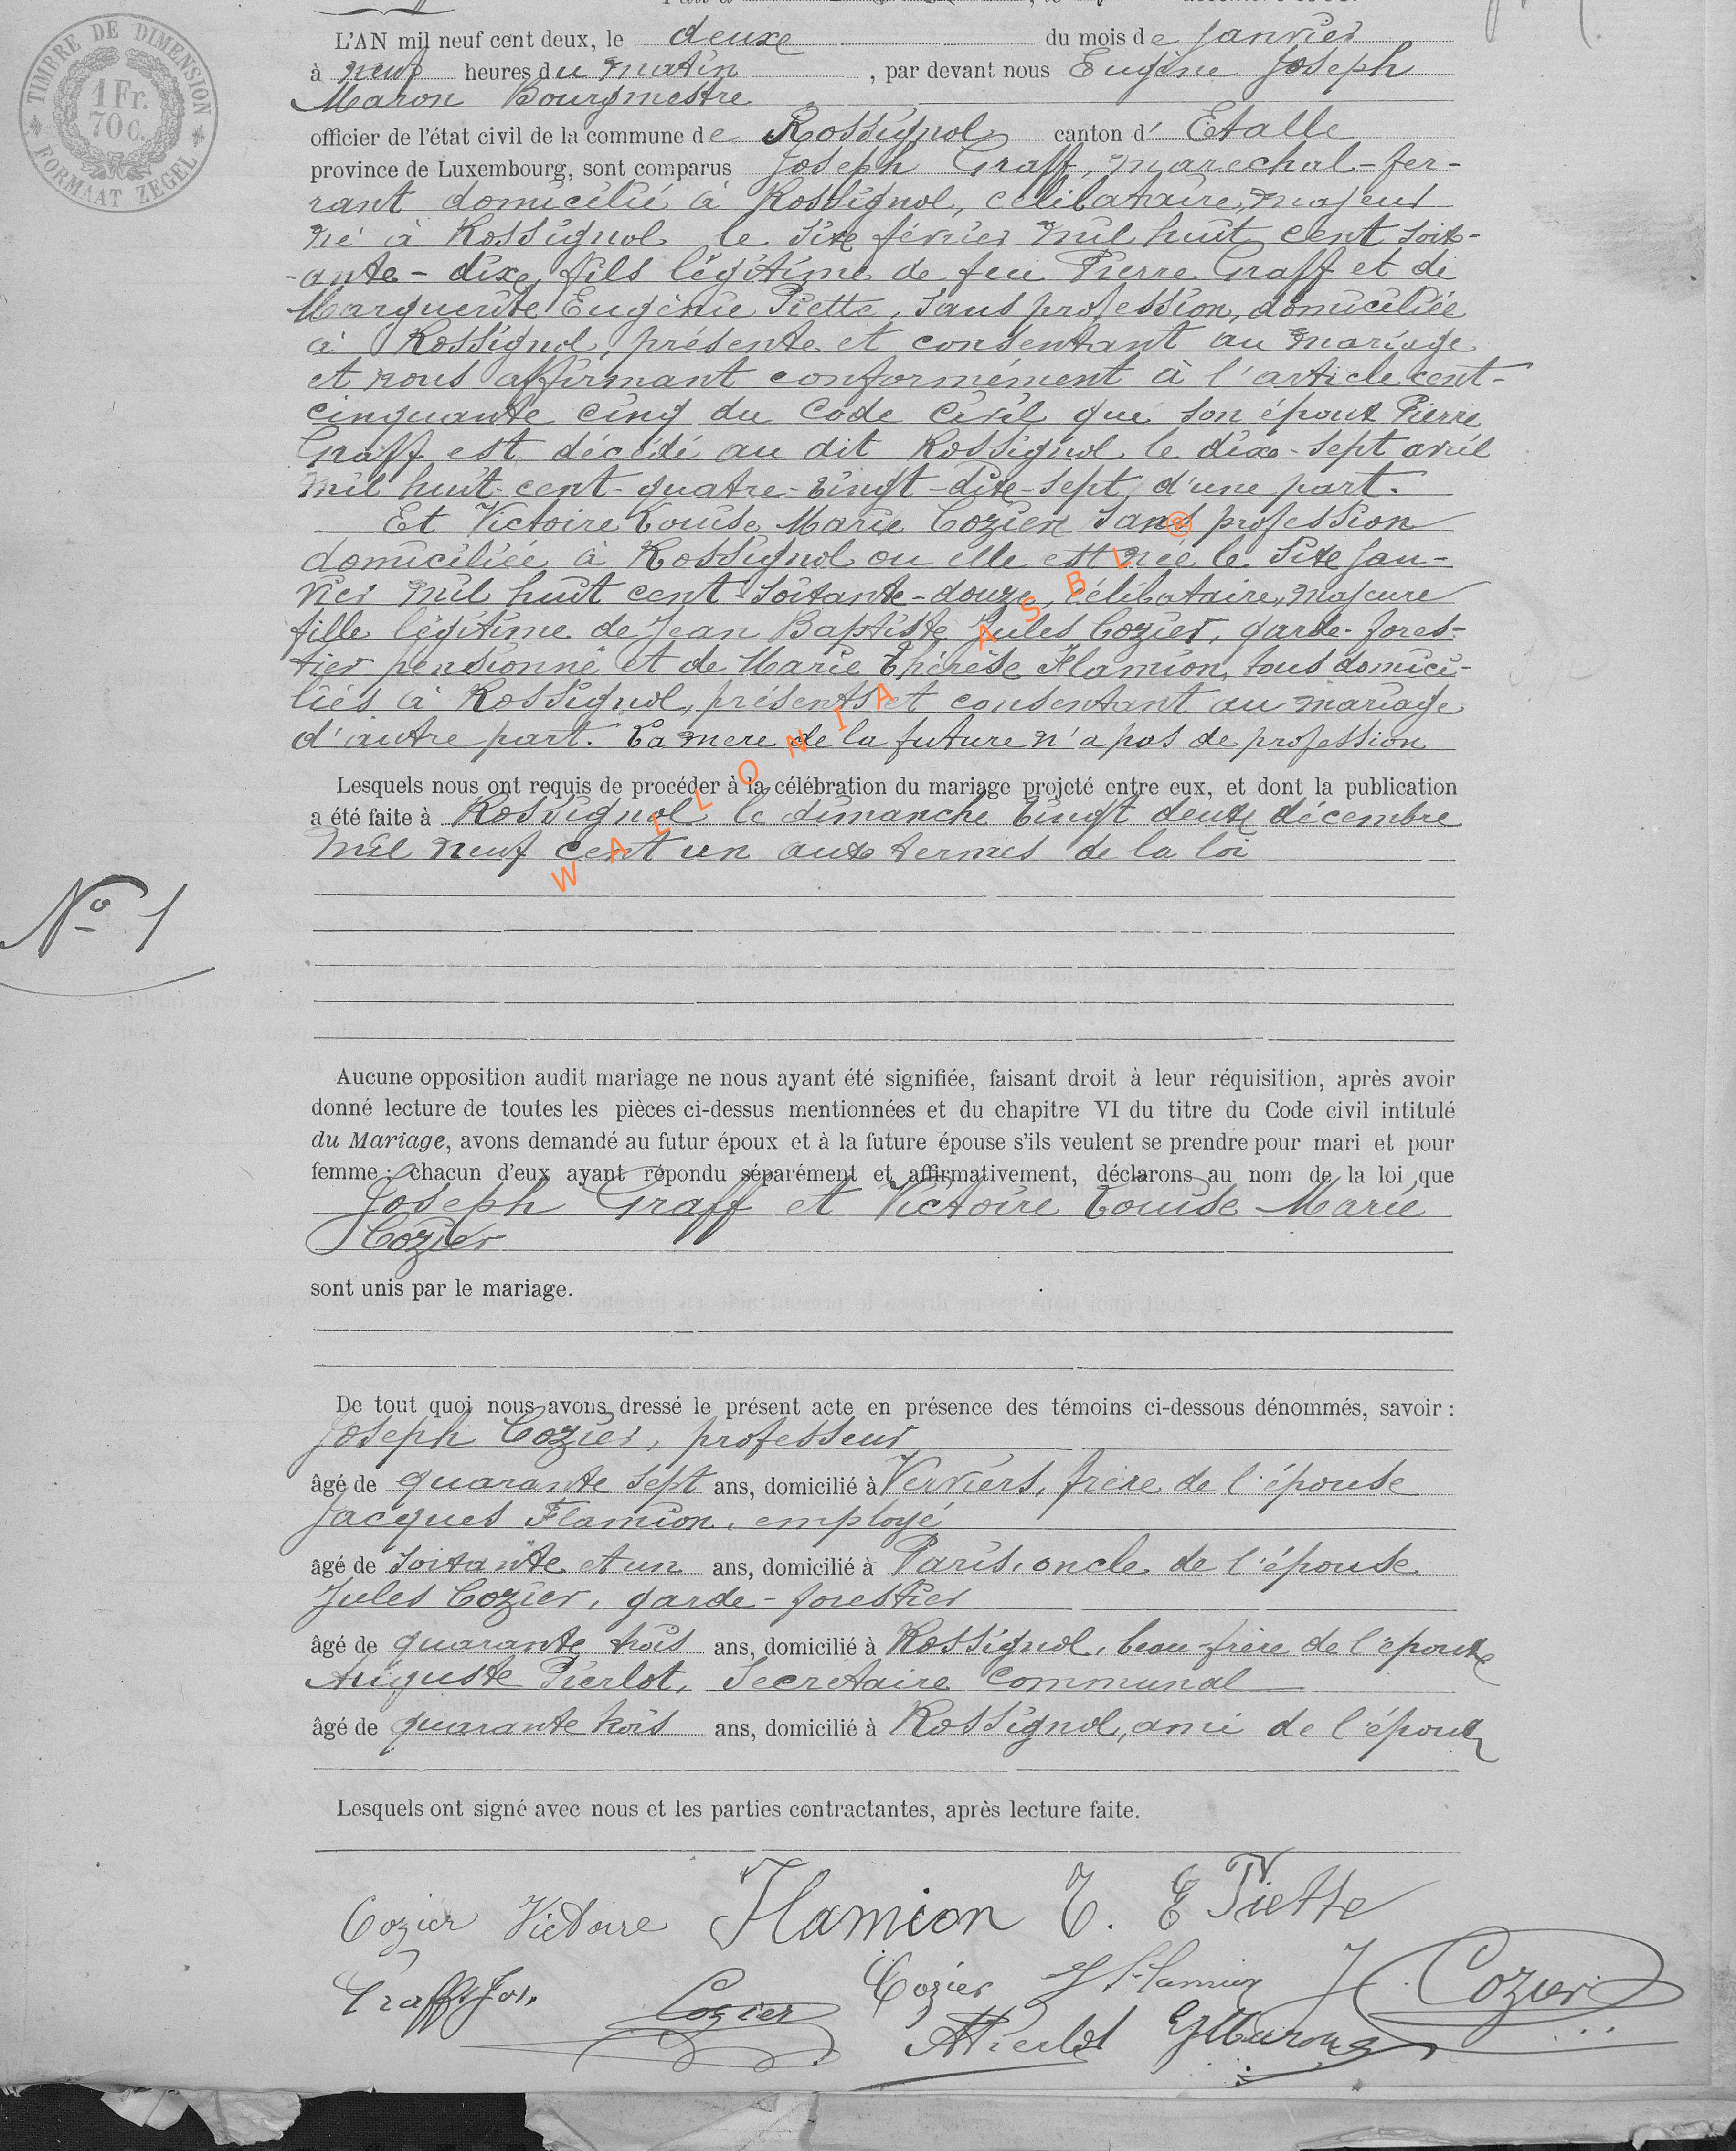 TIMBRE DE DIMENSION
1 Fr.
70 C.
FORMAAT ZEGEL
L'AN mil neuf cent deux, le deuxe du mois de Janvier
à neuf heures du matin, par devant nous Eugène Joseph
Maron Bourgmestre
officier de l'état civil de la commune de Rossignol canton d' Etalle
province de Luxembourg, sont comparus Joseph Graff, marechal-fer-
rant domicilié à Rossignol, célibataire, majeur
né à Rossignol le sixe février mil huit cent soix-
-ante-dixe, fils légitime de feu Pierre Graff et de
Marguerite Eugènie Piette, sans profession, domiciliée
à Rossignol, présente et consentant au mariage
et nous affirmant conformément à l'article cent-
cinquante cinq du Code Civil que son époux Pierre
Graff est décédé au dit Rossignol le dixe-sept avril
mil huit-cent-quatre-vingt-dixe-sept, d'une part.
Et Victoire Louise Marie Cozier sans profession
domiciliée à Rossignol ou elle est née le sixe Jan-
vier mil huit cent-soixante-douze, célibataire, majeure
fille légitime de Jean Baptiste Jules Cozier, garde-fores-
tier pensionné et de Marie Thérèse Flamion, tous domici-
liés à Rossignol, présents et consentant au mariage
d'autre part. La mere de la future n'a pas de profession
WALLONIA ASBL ®
Lesquels nous ont requis de procéder à la célébration du mariage projeté entre eux, et dont la publication
a été faite à Rossignol le dimanche vingt deuxe décembre
mil neuf cent un auxe termes de la loi
No 1
Aucune opposition audit mariage ne nous ayant été signifiée, faisant droit à leur réquisition, après avoir
donné lecture de toutes les pièces ci-dessus mentionnées et du chapitre VI du titre du Code civil intitulé
du Mariage, avons demandé au futur époux et à la future épouse s'ils veulent se prendre pour mari et pour
femme; chacun d'eux ayant répondu séparément et affirmativement, déclarons au nom de la loi que
Joseph Graff et Victoire Louise Marie
Cozier
sont unis par le mariage.
De tout quoi nous avons dressé le présent acte en présence des témoins ci-dessous dénommés, savoir :
Joseph Cozier, professeur
âgé de quarante sept ans, domicilié à Verviers, frère de l'épouse
Jacques Flamion, employé
âgé de soixante et un ans, domicilié à Paris, oncle de l'épouse
Jules Cozier, garde-forestier
âgé de quarante trois ans, domicilié à Rossignol, beau-frère de l'epouxe
Auguste Pierlot, Secretaire communal
âgé de quarante trois ans, domicilié à Rossignol, ami de l'époux
Lesquels ont signé avec nous et les parties contractantes, après lecture faite.
Cozier Victoire Flamion T. E Piette
Graff Jos. Cozier Cozier J Flamion J. Cozier
A Pierlot EJ Maron